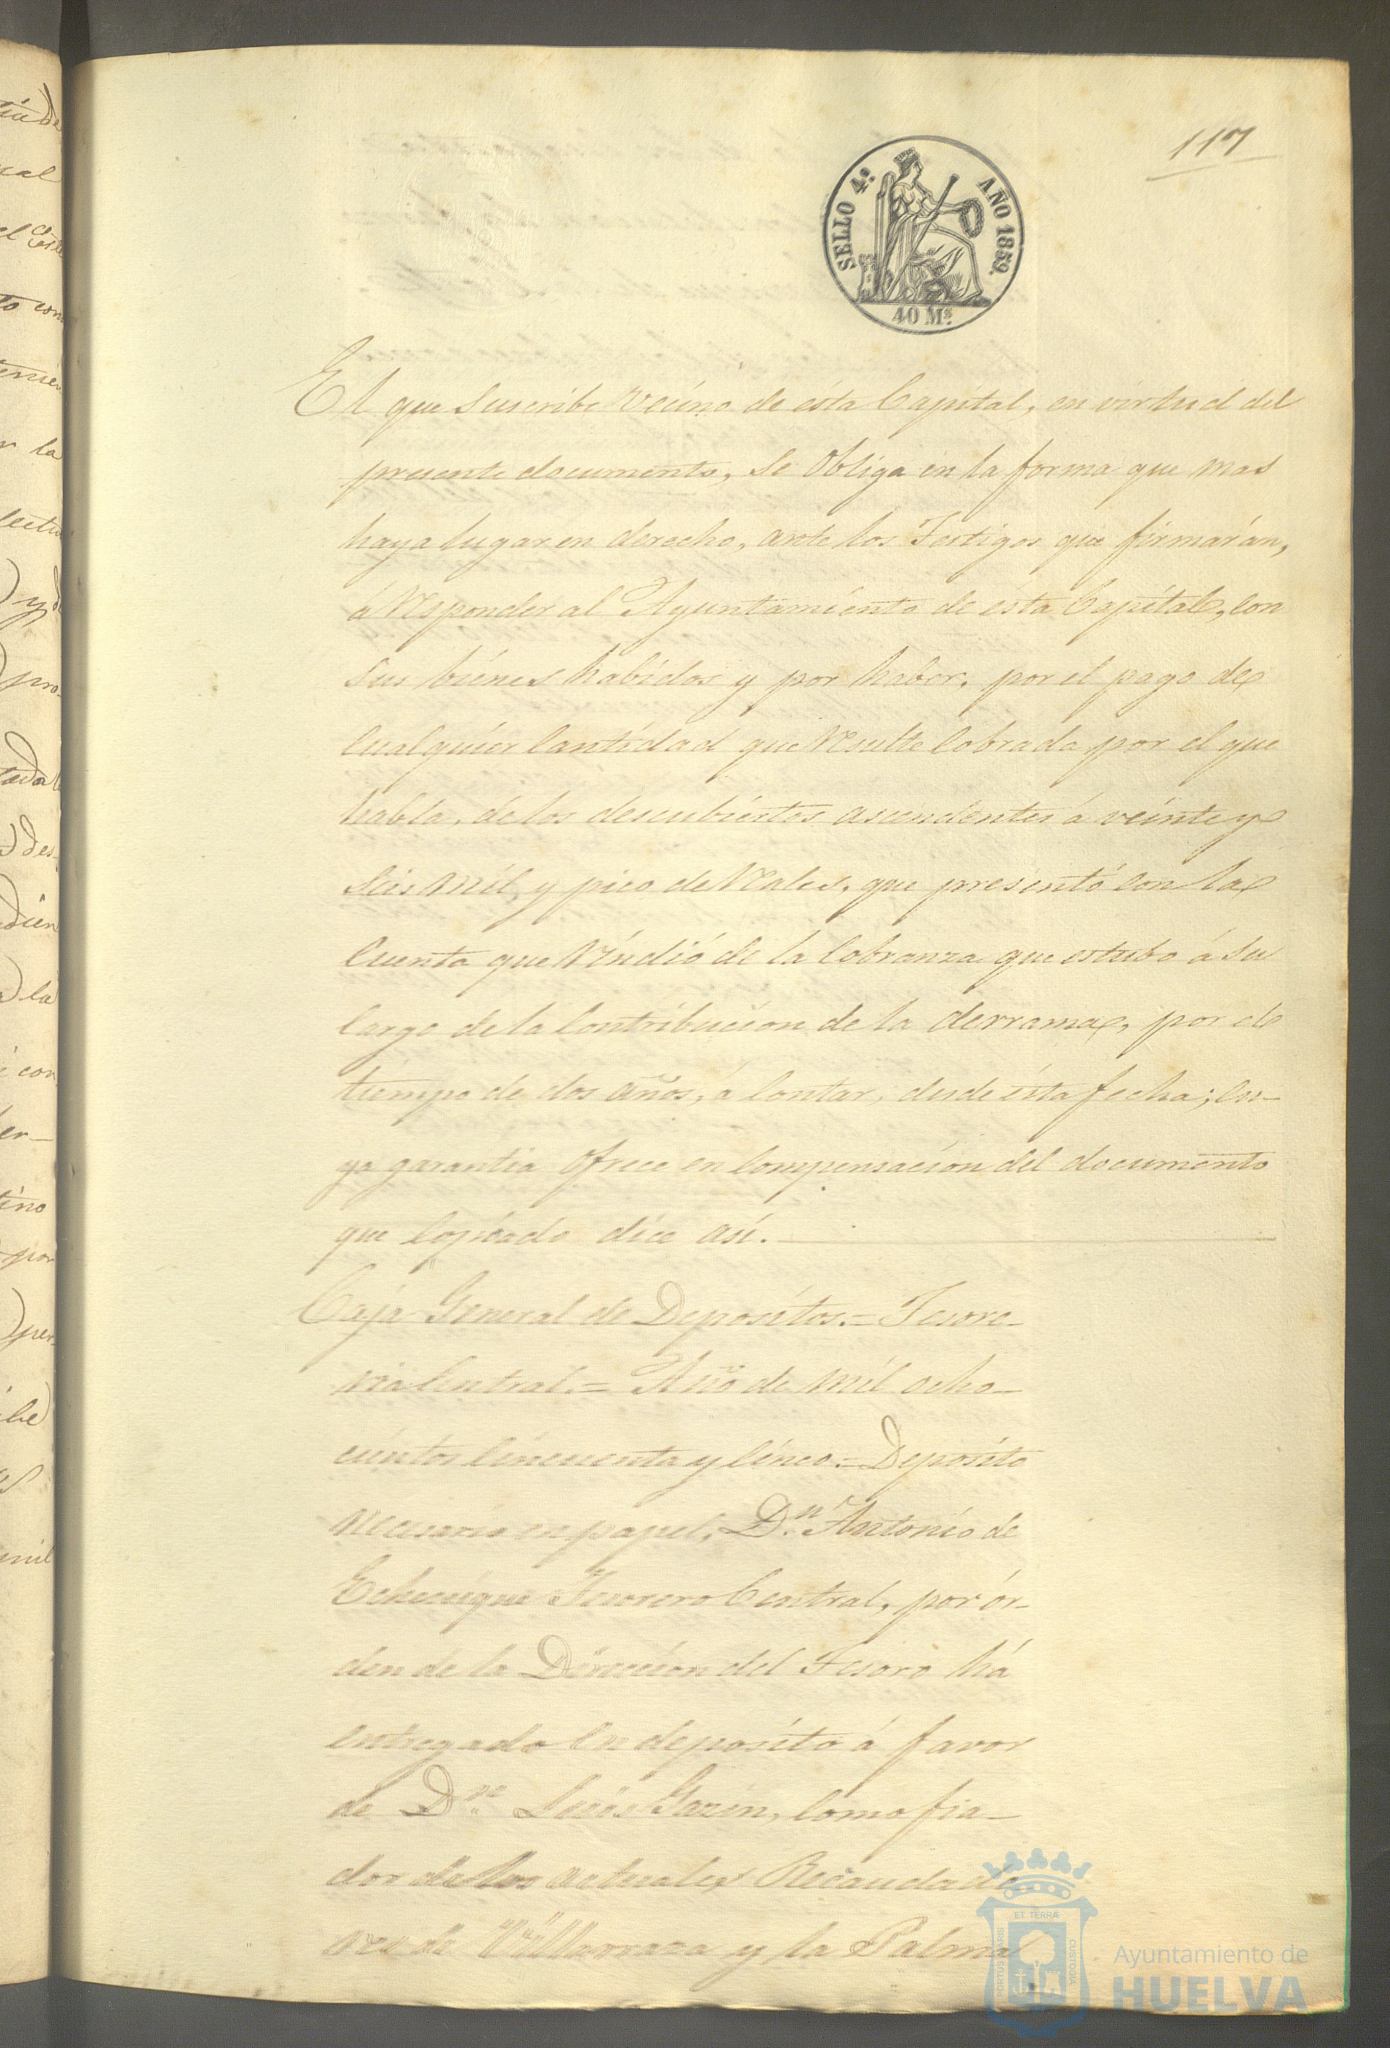 117
SELLO 4.º AÑO 1859.
40 Ms.
El que suscribe vecino de ésta Capital, en virtud del
presente documento, se obliga en la forma que mas
haya lugar en derecho, ante los Testigos que firmarán,
á responder al Ayuntamiento de ésta Capital, con
sus bienes habidos y por haber, por el pago de
cualquier cantidad que resulte cobrada por el que
habla, de los descubiertos ascendentes á veinte y
seis mil y pico de reales, que presentó con la
cuenta que rindió de la cobranza que estubo á su
cargo de la contribucion de la derrama, por el
tiempo de dos años, a contar, desde ésta fecha; cu-
ya garantia ofrece en compensacion del documento
que copiado dice asi.
Caja General de Depositos.= Tesore-
ria Central.= Año de mil ocho-
cientos cincuenta y cinco.= Deposito
necesario en papel, D.n Antonio de
Echenique Tesorero Central, por ór-
den de la Direccion del Tesoro há
entregado en deposito á favor
de D.n Luis Gazin, como fia-
dor de los actuales Recaudado-
res de Villarraza y la Palma
Ayuntamiento de
HUELVA
PORTUS MARIS
ET TERRÆ
CUSTODIA